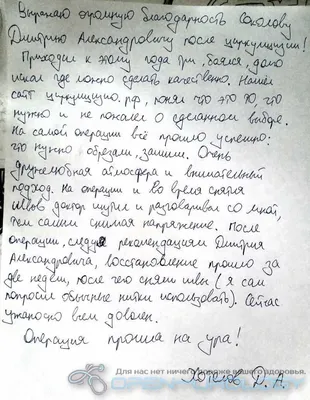 Выражаю огромную благодарность Соколову
Дмитрию Александровичу после циркумцизии!
Приходил к этому года три, боялся, долго
искал где можно сделать качественно. Нашел
сайт циркумцизио.рф, понял что это то, что
нужно и не пожалел о сделанном выборе.
На самой операции всё прошло успешно:
что нужно обрезали, зашили. Очень
дружелюбная атмосфера и внимательный
подход. На операции и во время снятия
швов доктор шутил и разговаривал со мной,
тем самым снимая напряжение. После
операции, следуя рекомендациям Дмитрия
Александровича, восстановление прошло за
две недели, после чего сняли швы (я сам
попросил обычные нитки использовать). Сейчас
ужасно всем доволен.
Операция прошла на ура!
Д. А.
Для нас нет ничего дороже вашего здоровья.